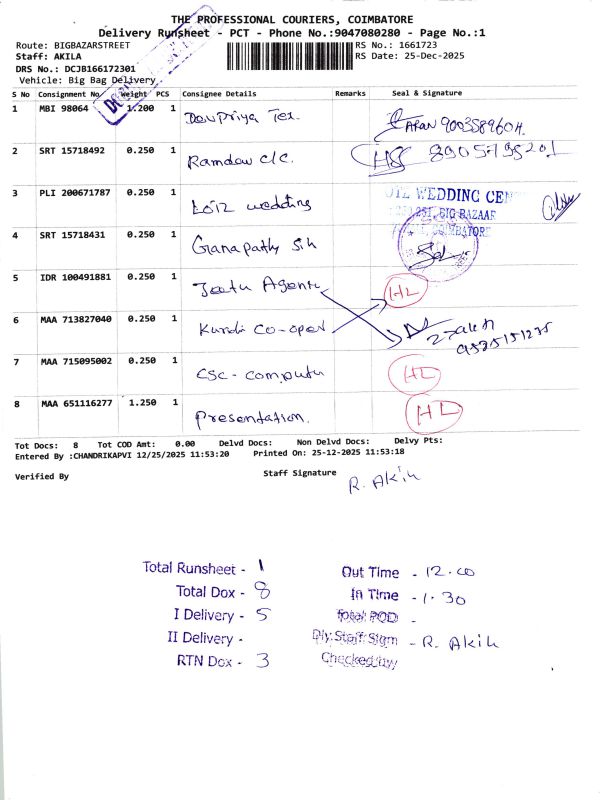 THE PROFESSIONAL COURIERS, COIMBATORE
Delivery Runsheet - PCT - Phone No.:9047080280 - Page No.:1
Route: BIGBAZARSTREET RS No.: 1661723
Staff: AKILA RS Date: 25-Dec-2025
DRS No.: DCJB166172301
Vehicle: Big Bag Delivery
S No Consignment No Weight PCS Consignee Details Remarks Seal & Signature
1 MBI 98064 1.200 1 Devpriya Tex.
2 SRT 15718492 0.250 1 Ramdev c/c. 8905795201
3 PLI 200671787 0.250 1 Lotz wedding WEDDING CEN
BIG BAZAAR
4 SRT 15718431 0.250 1 Ganapathy Silk
5 IDR 100491881 0.250 1 Jeetu Agency HL
6 MAA 713827040 0.250 1 Co-oper
7 MAA 715095002 0.250 1 CSC-Computer HL
8 MAA 651116277 1.250 1 Presentation. HL
Tot Docs: 8 Tot COD Amt: 0.00 Delvd Docs: Non Delvd Docs: Delvy Pts:
Entered By :CHANDRIKAPVI 12/25/2025 11:53:20 Printed On: 25-12-2025 11:53:18
Verified By Staff Signature R. Akila
Total Runsheet - 1 Out Time - 12.00
Total Dox - 8 In Time - 1.30
I Delivery - 5 Total POD -
II Delivery - Dly.Staff Sign - R. Akila
RTN Dox - 3 Checked by